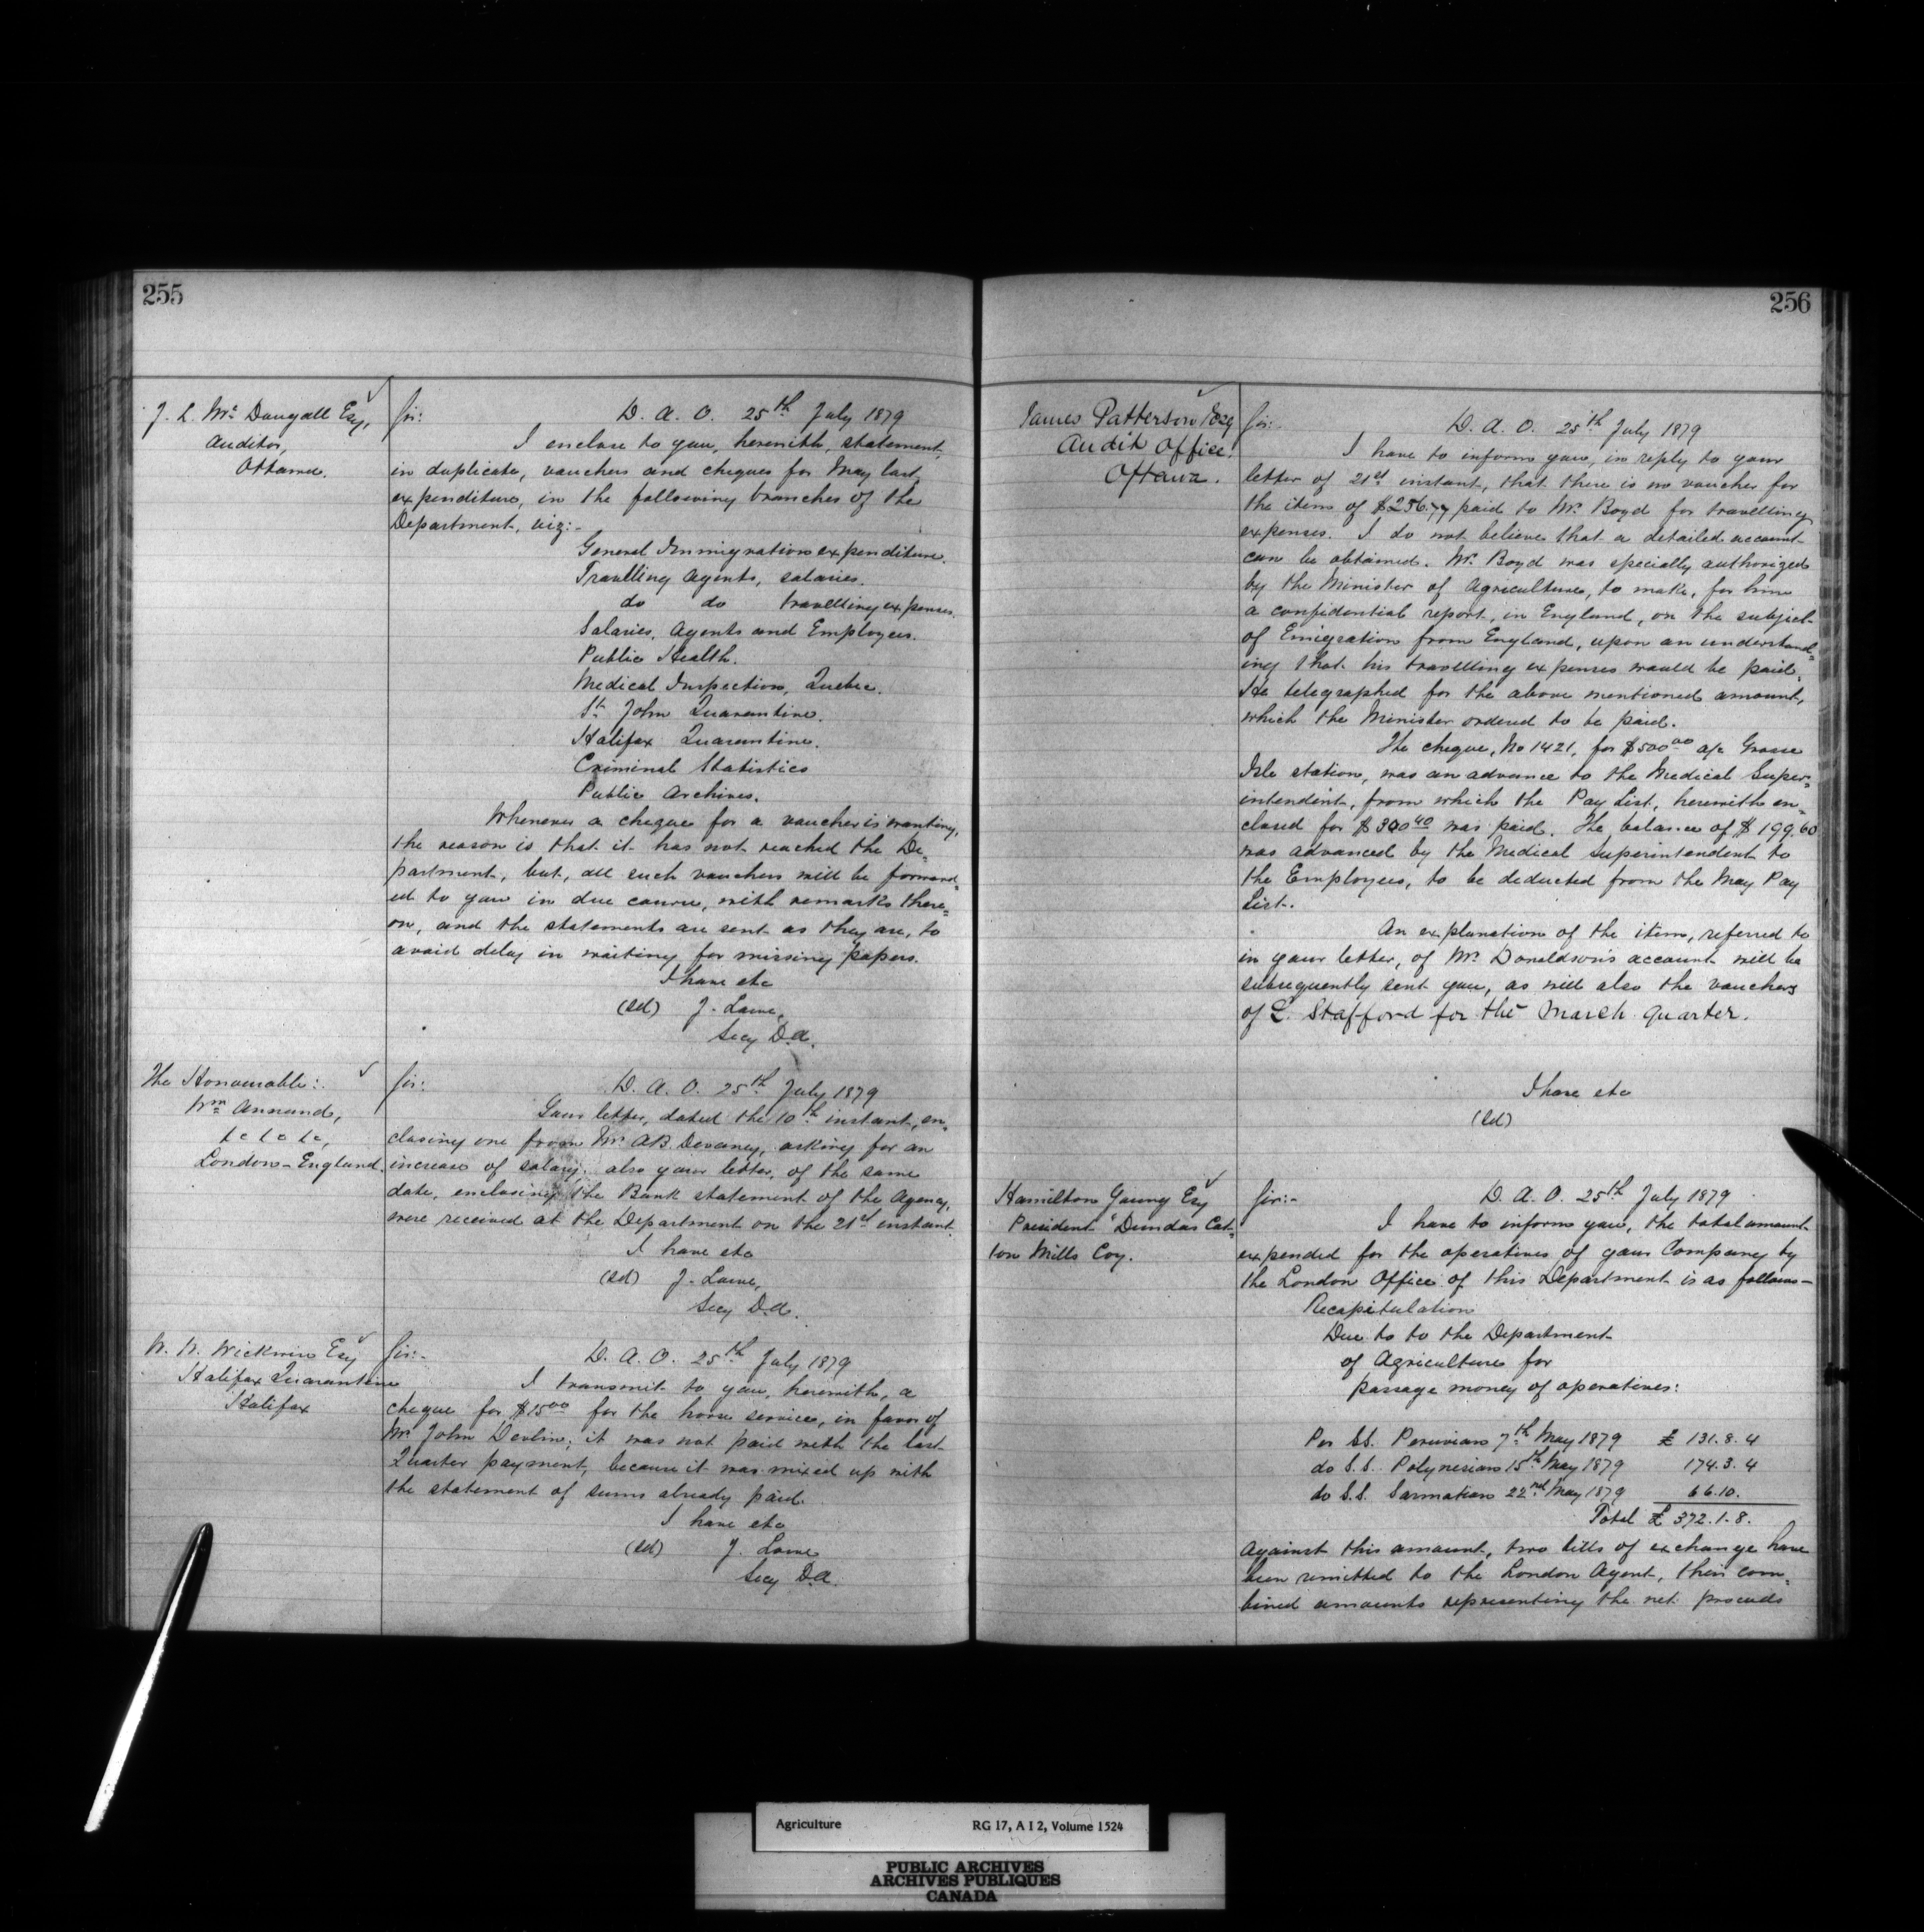 255
J. L. Mc Dougall Esq,
Auditor,
Ottawa.
Sir:
D. A. O. 25th July 1879
I enclose to you, herewith, statement,
in duplicate, vouchers and cheques for May last,
expenditure, in the following branches of the
Department, viz:-
General Immigration expenditure.
Travelling Agents, salaries.
do do travelling expenses.
Salaries, Agents and Employees.
Public Health.
Medical Inspection, Quebec.
St John Quarantine.
Halifax Quarantine.
Criminal Statistics
Public Archives.
Whenever a cheque for a voucher is wanting,
the reason is that it has not reached the De=
partment, but, all such vouchers will be forward=
ed to you in due course, with remarks there=
on, and the statements are sent as they are, to
avoid delay in waiting for missing papers.
I have etc
(sd) J. Lowe,
Secy D.A.
The Honourable:
Wm Annand,
&c &c &c,
London - England.
Sir:
D. A. O. 25th July 1879
Your letter, dated the 10th instant, en=
closing one from Mr. A.B. Devaney, asking for an
increase of salary, also your letter, of the same
date, enclosing the Bank statement of the Agency,
were received at the Department on the 21st instant.
I have etc
(sd) J. Lowe,
Secy D.A.
W. N. Wickwire Esq
Halifax Quarantine
Halifax
Sir:-
D. A. O. 25th July 1879
I transmit to you, herewith, a
cheque for $15.00 for the horse service, in favor of
Mr. John Devlin; it was not paid with the last
Quarter payment, because it was mixed up with
the statement of sums already paid.
I have etc
(sd) J. Lowe
Secy D.A.
256
James Patterson Esq
Audit Office,
Ottawa.
Sir:-
D. A. O. 25th July 1879
I have to inform you, in reply to your
letter of 21st instant, that there is no voucher for
the item of $256.77 paid to Mr. Boyd for travelling
expenses. I do not believe that a detailed account
can be obtained. Mr. Boyd was specially authorized
by the Minister of Agriculture, to make, for him
a confidential report, in England, on the subject
of Emigration from England, upon an understand=
ing that his travelling expenses would be paid.
He telegraphed for the above mentioned amount,
which the Minister ordered to be paid.
The cheque, No 1421, for $500.00 a/c Grosse
Isle station, was an advance to the Medical Super=
intendent, from which the Pay List, herewith en=
closed for $300.40 was paid. The balance of $199.60
was advanced by the Medical Superintendent to
the Employees, to be deducted from the May Pay
List.
An explanation of the item, referred to
in your letter, of Mr. Donaldson's account will be
subsequently sent you, as will also the vouchers
of L. Stafford for the March quarter.
I have etc
(sd)
Hamilton Young Esq
President "Dundas Cot=
ton Mills Coy.
Sir:-
D. A. O. 25th July 1879
I have to inform you, the total amount
expended for the operatives of your Company by
the London Office of this Department is as follows-
Recapitulation
Due to to the Department
of Agriculture for
passage money of operatives:
Per SS. Peruvian 7th May 1879 £ 131.8.4
do S.S. Polynesian 15th May 1879 174.3.4
do S.S. Sarmatian 22nd May 1879 66.10.
Total £ 372.1.8.
Against this amount, two bills of exchange have
been remitted to the London Agent, their com=
bined amounts representing the net proceeds
Agriculture RG 17, A I 2, Volume 1524
PUBLIC ARCHIVES
ARCHIVES PUBLIQUES
CANADA